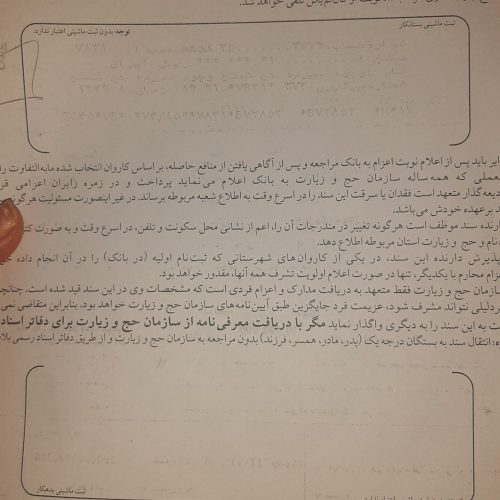 خواهد شد.
ثبت ماشینی بستانکار
توجه: بدون ثبت ماشینی اعتبار ندارد.
ایر باید پس از اعلام نوبت اعزام به بانک مراجعه و پس از آگاهی یافتن از منافع حاصله، بر اساس کاروان انتخاب شده مابه‌التفاوت را
عملی که همه‌ساله سازمان حج و زیارت به بانک اعلام می‌نماید پرداخت و در زمره زایران اعزامی قر
دیعه‌گذار متعهد است فقدان یا سرقت این سند را در اسرع وقت به اطلاع شعبه مربوطه برساند. در غیر اینصورت مسئولیت هرگونه
بر عهده خودش می‌باشد.
ارنده سند موظف است هرگونه تغییر در مندرجات آن را، اعم از نشانی محل سکونت و تلفن، در اسرع وقت و به صورت
نام و حج و زیارت استان مربوطه اطلاع دهد.
پذیرش دارنده این سند، در یکی از کاروان‌های شهرستانی که ثبت‌نام اولیه (در بانک) را در آن انجام داده
زام محارم با یکدیگر، تنها در صورت اعلام اولویت تشرف همه آنها، مقدور خواهد بود.
سازمان حج و زیارت فقط متعهد به دریافت مدارک و اعزام فردی است که مشخصات وی در این سند قید شده است. چنانچ
ر دلیلی نتواند مشرف شود، عزیمت فرد جایگزین طبق آیین‌نامه‌های سازمان حج و زیارت خواهد بود. بنابراین متقاضی نمی
ت به این سند را به دیگری واگذار نماید مگر با دریافت معرفی‌نامه از سازمان حج و زیارت برای دفاتر اسناد
ه: انتقال سند به بستگان درجه یک (پدر، مادر، همسر، فرزند) بدون مراجعه به سازمان حج و زیارت و از طریق دفاتر اسناد رسمی بلا
ثبت ماشینی بدهکار